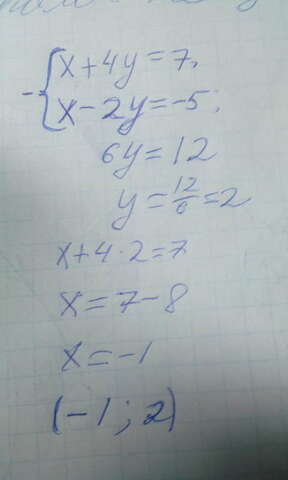 - { x + 4y = 7,
x - 2y = -5;
6y = 12
y = 12/6 = 2
x + 4 · 2 = 7
x = 7 - 8
x = -1
(-1; 2)